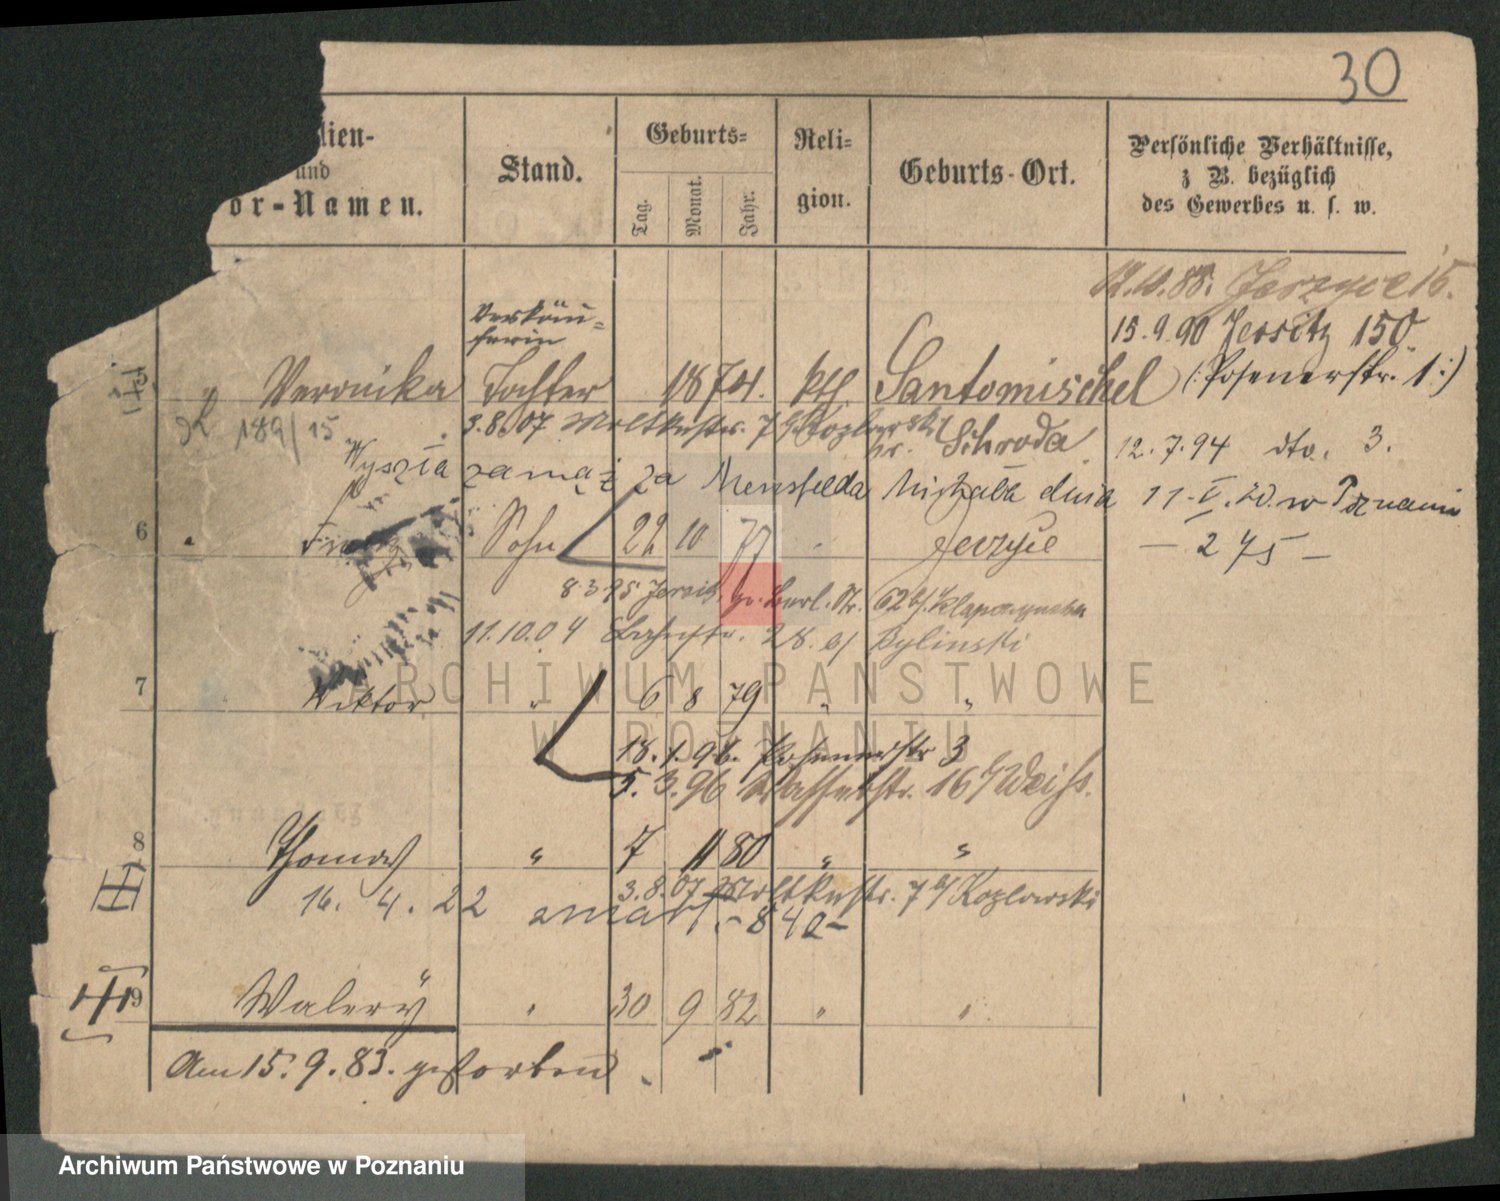 30
lien-
und
or-Namen.
Stand.
Geburts-
Tag.
Monat.
Jahr.
Reli-
gion.
Geburts-Ort.
Persönliche Verhältnisse,
z B. bezüglich
des Gewerbes u. s. w.
12.10.88. Jerzyce 15.
15.9.90 Jersitz 150
(:Posenerstr. 1:)
Verkäu-
ferin
" Veronika Tochter 1874. kth. Santomischel
189/15
3.8.07 Moltkestr. 7 Kozlowski
Kr. Schroda
12.7.94 dto. 3.
Wyszła zamąż za Mensfelda Michała dnia 11.V.20. w Poznaniu
6 Sohn 22 10 77 " Jerzyce
- 275 -
8.3.95 Jersitz, gr. Berl. Str. 62
11.10.04 Bahnstr. 28. b/ Rylinski
7 Viktor " 6 8 79 " "
18.1.96. Posenerstr 3
5.3.96 Wasserstr. 16 b/ Weiss.
8 Thomas " 7 11 80 " "
3.8.07 Moltkestr. 7 b/ Kozlowski
16. 4. 22 zmarł. - 840 -
9 Walery " 30 9 82 " "
Am 15.9.83. gestorben
ARCHIWUM PAŃSTWOWE
W POZNANIU
Archiwum Państwowe w Poznaniu